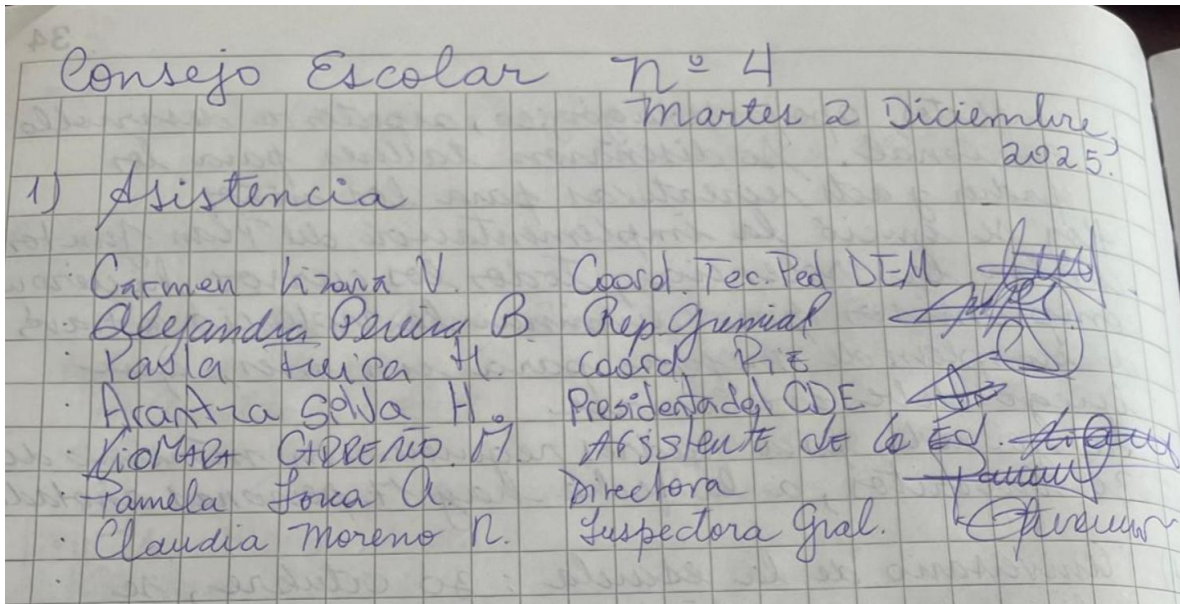 Consejo Escolar nº 4
Martes 2 Diciembre,
2025.
1) Asistencia
· Carmen Lizana V. Coord. Tec. Ped DEM
· Alejandra Pereira B. Rep Gremial
· Paola H. Coord. PIE
· Arantza H. Presidenta del CDE
· Xiomara Carreño. M Assistente de la Ed.
· Pamela A. Directora
· Claudia Moreno N. Inspectora Gral.